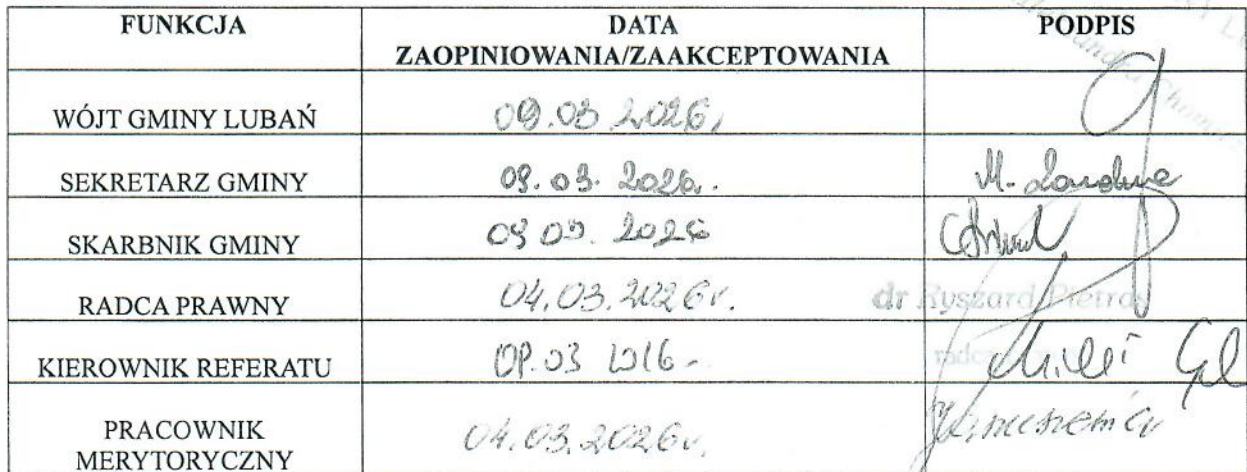 FUNKCJA
DATA ZAOPINIOWANIA/ZAAKCEPTOWANIA
PODPIS
WÓJT GMINY LUBAŃ
09.03.2026r
SEKRETARZ GMINY
09.03.2026.
M.
SKARBNIK GMINY
2026
RADCA PRAWNY
04.03.2026r.
dr Ryszard Pietras
radca
KIEROWNIK REFERATU
PRACOWNIK MERYTORYCZNY
04.03.2026r.